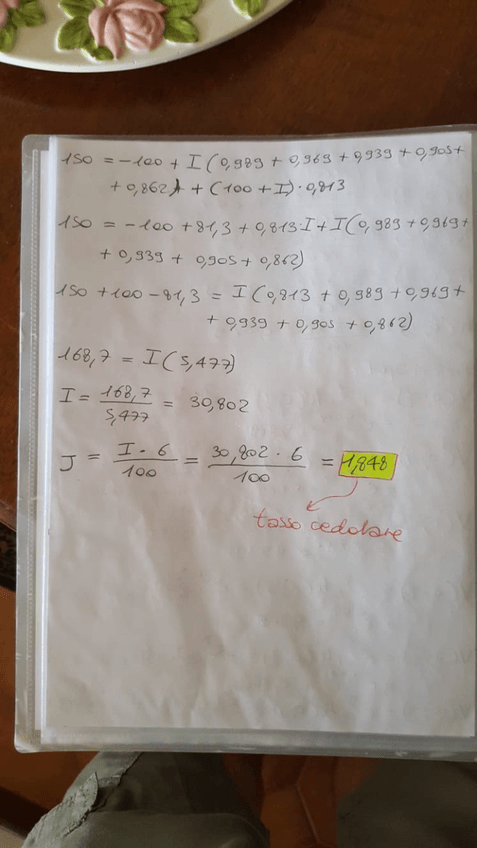 150 = -100 + I (0,989 + 0,969 + 0,939 + 0,905 +
+ 0,862) + (100 + I) · 0,813
150 = -100 + 81,3 + 0,813 · I + I (0,989 + 0,969 +
+ 0,939 + 0,905 + 0,862)
150 + 100 - 81,3 = I (0,813 + 0,989 + 0,969 +
+ 0,939 + 0,905 + 0,862)
168,7 = I (5,477)
I = 168,7 / 5,477 = 30,802
J = I · 6 / 100 = 30,802 · 6 / 100 = 1,848
tasso cedolare